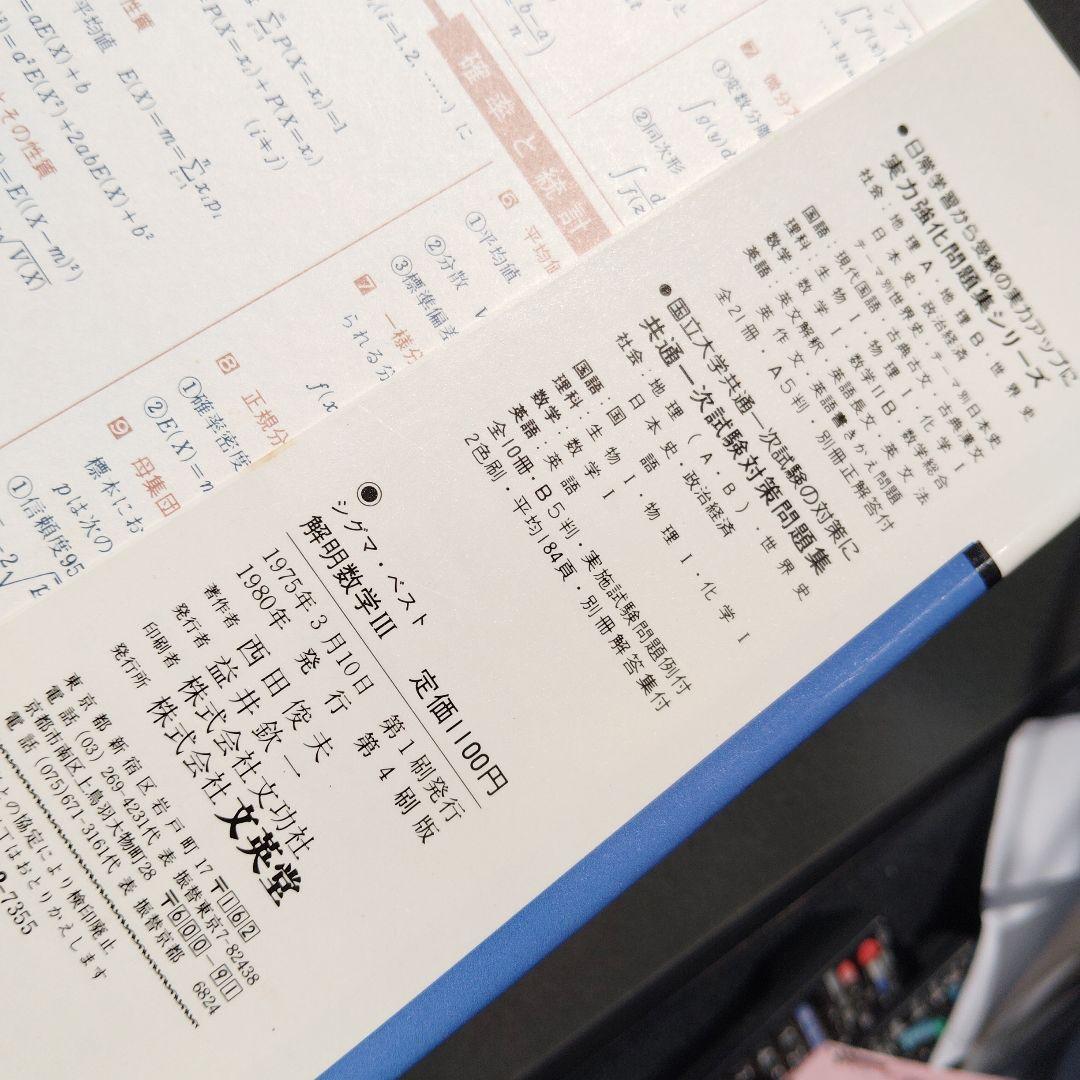 ●日常学習から受験の実力アップに
実力強化問題集シリーズ
社会：地理A・地理B・世界史
日本史・政治経済
テーマ別世界史・テーマ別日本史
国語：現代国語・古典古文・古典漢文
理科：生物Ⅰ・物理Ⅰ・化学Ⅰ
数学：数学Ⅰ・数学ⅡB・数学総合
英語：英文解釈・英語長文・英文法
英作文・英語書きかえ問題
全21冊・A5判・別冊正解答付
●国立大学共通一次試験の対策に
共通一次試験対策問題集
社会：地理(A・B)・世界史
日本史・政治経済
国語：国語
理科：生物Ⅰ・物理Ⅰ・化学Ⅰ
数学：数学Ⅰ
英語：英語
全10冊・B5判・実施試験問題例付
2色刷・平均184頁・別冊解答集付
シグマ・ベスト
解明数学III 定価1100円
1975年3月10日 第1刷発行
1980年 発行 第4刷版
著作者 西田俊夫
発行者 益井欽一
印刷者 株式会社文功社
発行所 株式会社文英堂
東京都新宿区岩戸町17〒162
電話(03)269-4231代表 振替東京7-82438
京都市南区上鳥羽大物町28 〒600-91
電話(075)671-3161代表 振替京都 6824
との協定により検印廃止
丁はおとりかえします
-7355
確率と統計
aE(X)+b
=a²E(X²)+2abE(X)+b²
とその性質
=E((X-m)²)
√V(X)
性質
平均値 E(X)=m=∑xᵢpᵢ
∑P(X=xᵢ)=1
P(X=xᵢ)+P(X=xⱼ)
(i≠j)
(i=1,2,……)に
6 平均値
①平均値
②分散 V
③標準偏差
7 一様分
られる分
f(x
8 正規分
①確率密度
②E(X)=m
9 母集団
標本にお
pは次の
①信頼度95
7 微分方
①変数分離
∫g(y)d
②同次形